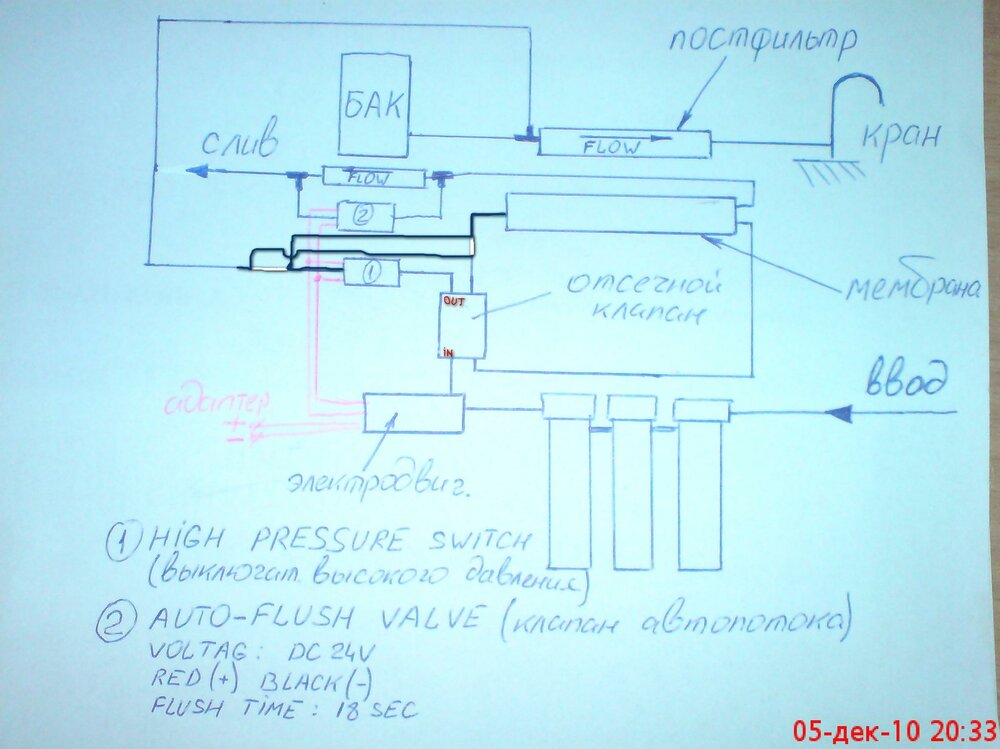 постфильтр
БАК
кран
слив
FLOW
FLOW
2
1
мембрана
отсечной
клапан
OUT
IN
ввод
адаптер
+
-
электродвиг.
1 HIGH PRESSURE SWITCH
(выключат. высокого давления)
2 AUTO-FLUSH VALVE (клапан автопотока)
VOLTAG: DC 24V
RED (+) BLACK (-)
FLUSH TIME: 18 SEC
05-дек-10 20:33